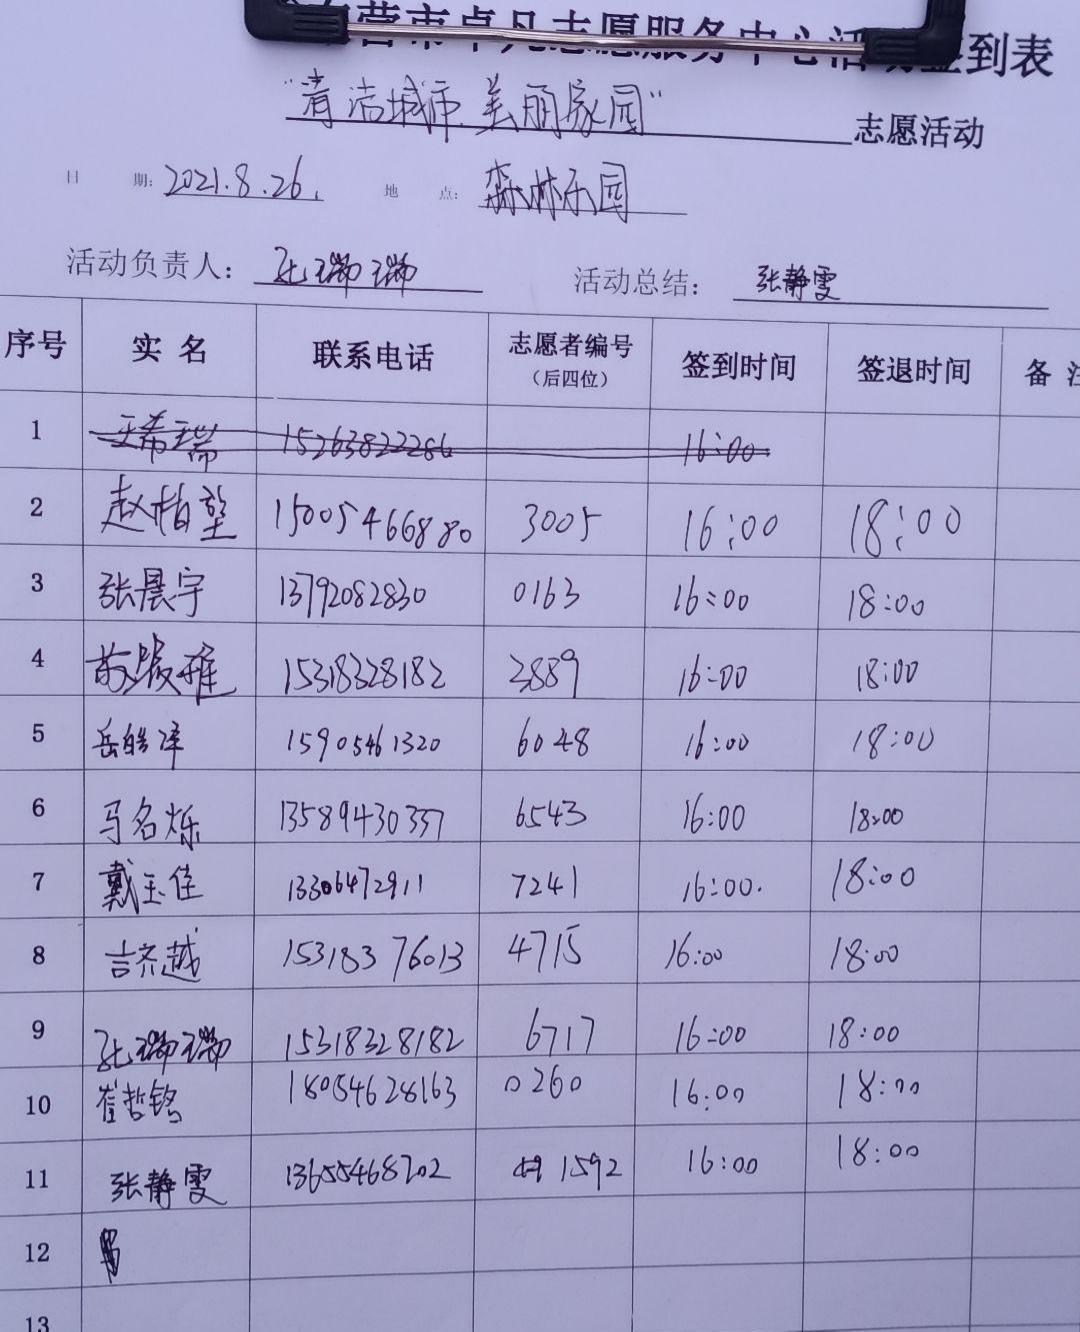 营市卓凡志愿服务中心活动签到表
"清洁城市 美丽家园" 志愿活动
日 期: 2021.8.26. 地 点: 森林乐园
活动负责人: 张瑞瑞 活动总结: 张静雯
序号 实 名 联系电话 志愿者编号 (后四位) 签到时间 签退时间 备 注
1 王希瑞 15263822286 16:00
2 赵柏堃 15005466880 3005 16:00 18:00
3 张晨宇 13792082830 0163 16:00 18:00
4 15318328182 3889 16:00 18:00
5 岳皓泽 15905461320 6048 16:00 18:00
6 马名烁 13589430337 6543 16:00 18:00
7 戴玉佳 13306472911 7241 16:00. 18:00
8 吉齐越 15318376013 4715 16:00 18:00
9 张瑞瑞 15318328182 6717 16:00 18:00
10 崔哲铭 18054628163 0260 16:00 18:00
11 张静雯 13655468702 1592 16:00 18:00
12
13